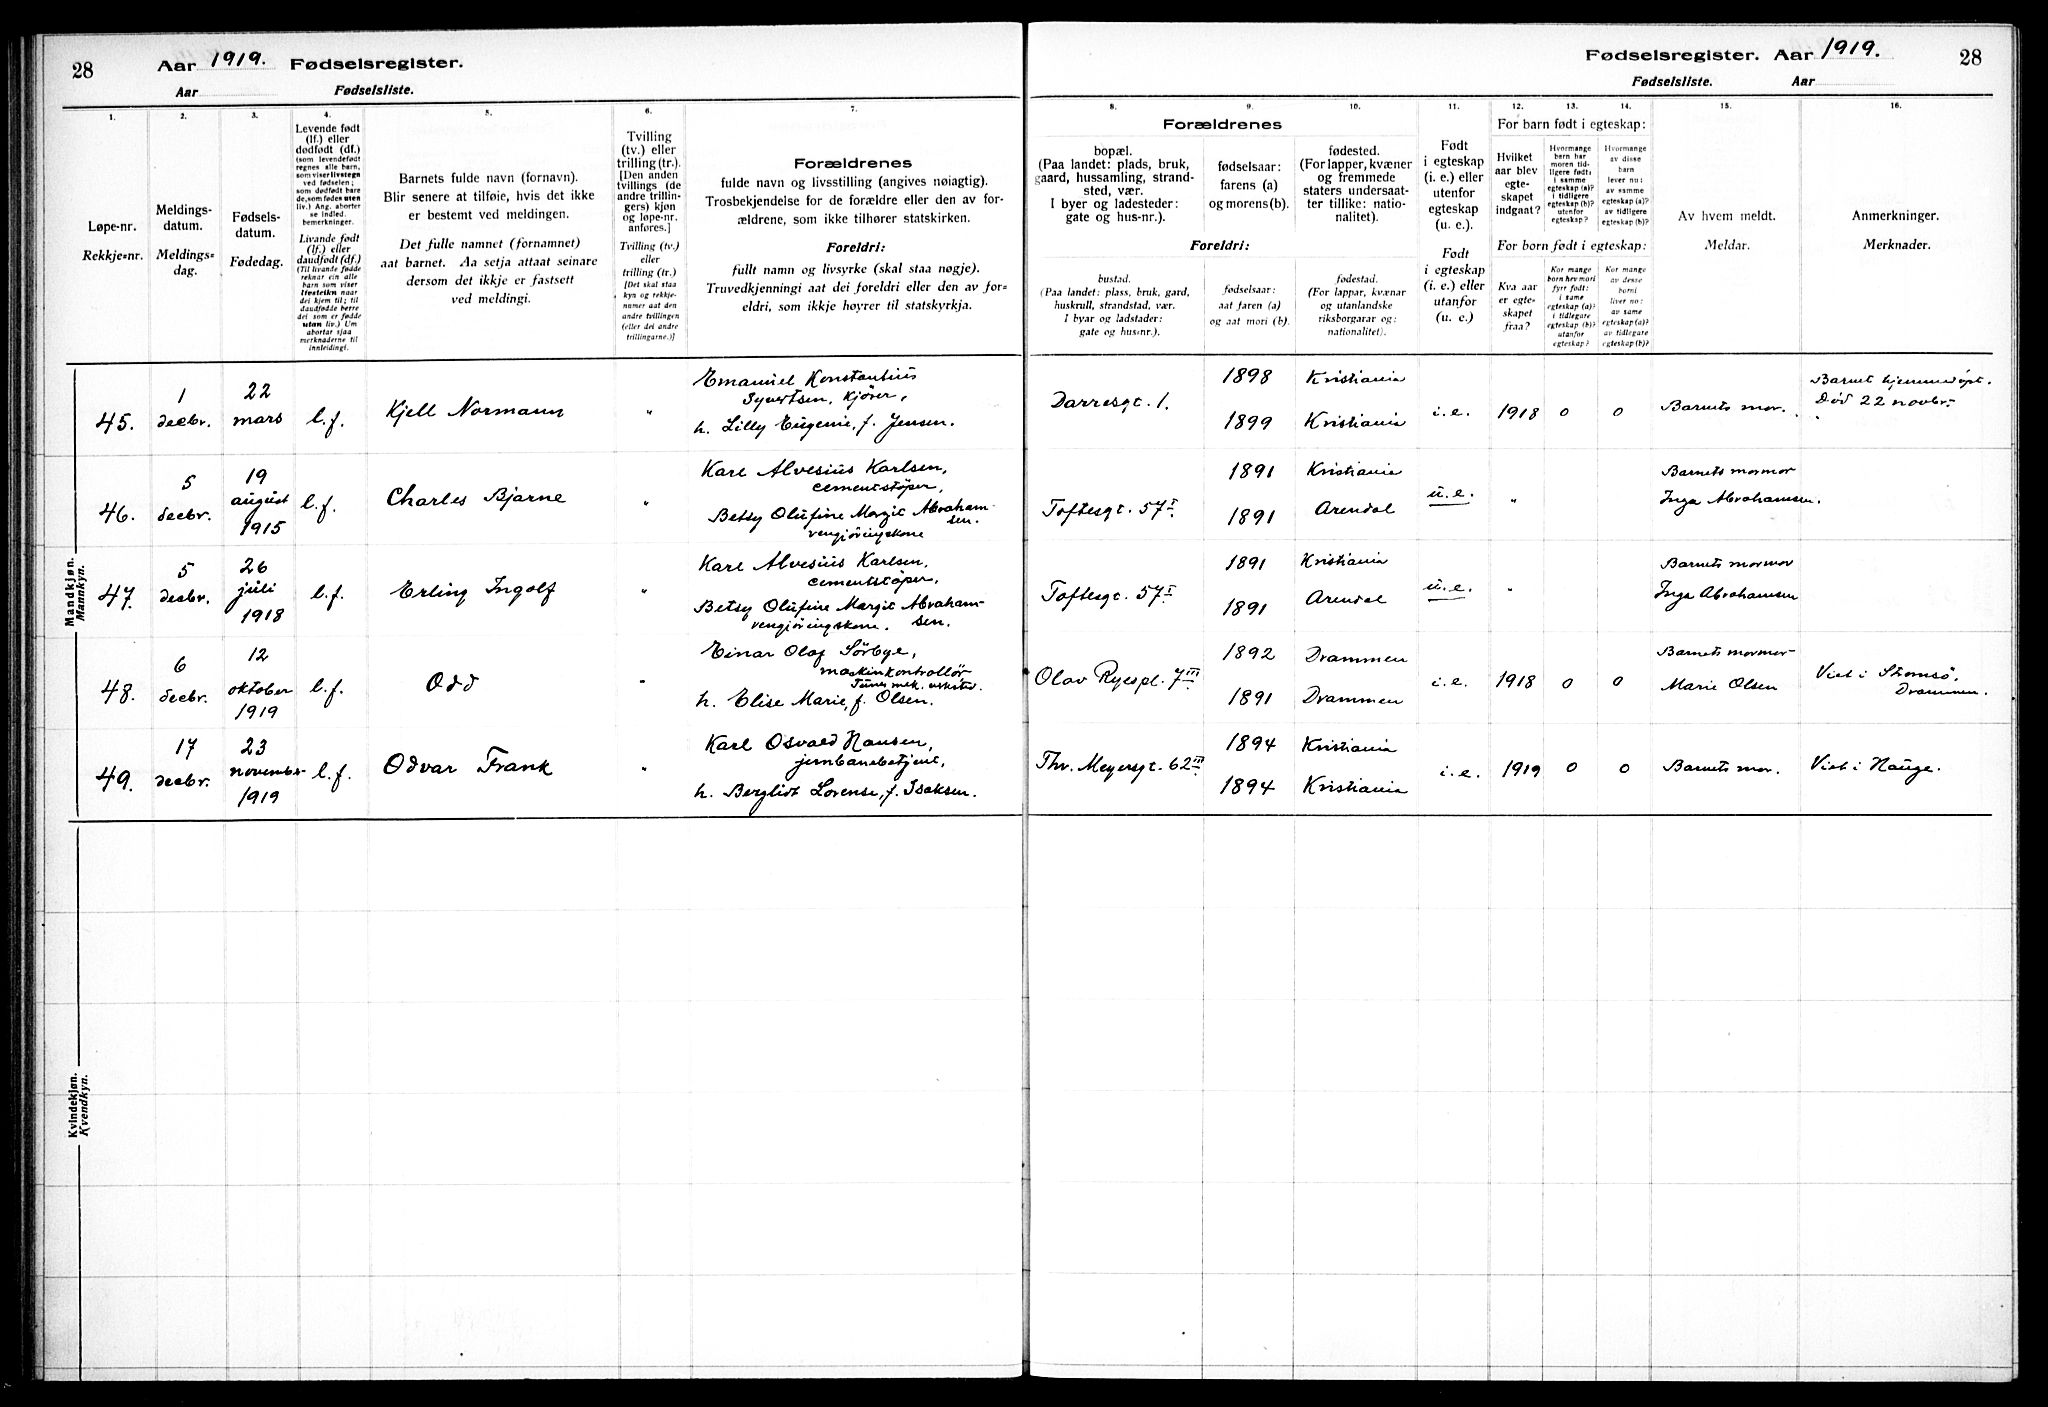 28
Aar 1919. Fødselsregister.
Aar Fødselsliste.
1.
Løpe-nr.
Rekkje=nr.
2.
Meldings-
datum.
Meldings=
dag.
3.
Fødsels-
datum.
Fødedag.
4.
Levende født
(lf.) eller
dødfødt (df.)
(som levendefødt
regnes alle barn,
som viser livstegn
ved fødselen;
som dødfødt bare
de, som fødes uten
liv.) Ang. aborter
se indled.
bemerkninger.
Livande født
(lf.) eller
daudfødt (df.)
(Til livande fødde
reknar ein alle
barn som viser
livsteikn naar
dei kjem til; til
daudfødde berre
dei som er fødde
utan liv.) Um
abortar sjaa
merknaderne til
innleidingi.
5.
Barnets fulde navn (fornavn).
Blir senere at tilføie, hvis det ikke
er bestemt ved meldingen.
Det fulle namnet (fornamnet)
aat barnet. Aa setja attaat seinare
dersom det ikkje er fastsett
ved meldingi.
6.
Tvilling
(tv.) eller
trilling (tr.).
[Den anden
tvillings (de
andre trillin-
gers) kjøn
og løpe-nr.
anføres.]
Tvilling (tv.)
eller
trilling (tr.)
[Det skal staa
kyn og rekkje-
numer aat den
andre tvillingen
(eller dei andre
trillingarne.)]
7.
Forældrenes
fulde navn og livsstilling (angives nøiagtig).
Trosbekjendelse for de forældre eller den av for-
ældrene, som ikke tilhører statskirken.
Foreldri:
fullt namn og livsyrke (skal staa nøgje).
Truvedkjenningi aat dei foreldri eller den av for=
eldri, som ikkje høyrer til statskyrkja.
Mandkjøn.
Mannkyn.
45.
1
decbr.
22
mars
l.f.
Kjell Normann
"
Emanuel Konstantius
Syvertsen, kjører,
h. Lilly Eugenie, f. Jensen.
46.
5
decbr.
19
august
1915
l.f.
Charles Bjarne
"
Karl Alvesius Karlsen,
cementstøper,
Betsy Olufine Margit Abraham-
sen.
rengjøringskone
47.
5
decbr.
26
juli
1918
l.f.
Erling Ingolf
"
Karl Alvesius Karlsen,
cementstøper,
Betsy Olufine Margit Abraham-
sen.
rengjøringskone.
48.
6
decbr.
12
oktober
1919
l.f.
Odd
"
Einar Olaf Sørbye,
maskinkontrollør
mek.
h. Elise Marie, f. Olsen.
49.
17
decbr.
23
november
1919
l.f.
Odvar Frank
"
Karl Osvald Hansen,
jernbanebetjent,
h. Berglidt Lovense, f. Isaksen.
Kvindekjøn.
Kvendkyn.
Fødselsregister. Aar 1919.
28
Fødselsliste. Aar
8.
9.
10.
Forældrenes
bopæl.
(Paa landet: plads, bruk,
gaard, hussamling, strand-
sted, vær.
I byer og ladesteder:
gate og hus-nr.).
fødselsaar:
farens (a)
og morens (b).
fødested.
(For lapper, kvæner
og fremmede
staters undersaat-
ter tillike: natio-
nalitet).
Foreldri:
bustad.
(Paa landet: plass, bruk, gard,
huskrull, strandstad, vær.
I byar og ladstader:
gate og hus=nr.).
fødselsaar:
aat faren (a)
og aat mori (b).
fødestad.
(For lappar, kvænar
og utanlandske
riksborgarar og:
nationalitet).
11.
Født
i egteskap
(i. e.) eller
utenfor
egteskap
(u. e.).
Født
i egteskap
(i. e.) eller
utanfor
(u. e.)
12.
13.
14.
For barn født i egteskap:
Hvilket
aar blev
egte-
skapet
indgaat?
Hvormange
barn har
moren tid-
ligere født:
i samme
egteskap (a)?
i tidligere
egteskap (b)?
utenfor
egteskap?
Hvormange
av disse
barn
lever nu:
av samme
egteskap (a)?
av tidligere
egteskap (b)?
For born født i egteskap:
Kva aar
er egte-
skapet
fraa?
Kor mange
born hev mori
fyrr født:
i same
egteskap (a)?
i tidlegare
egteskap (b)?
utanfor
egteskap?
Kor mange
av desse
borni
liver no:
av same
egteskap (a)?
av tidlegare
egteskap (b)?
15.
Av hvem meldt.
Meldar.
16.
Anmerkninger.
Merknader.
Darresgt. 1.
1898
1899
Kristiania
Kristiania
i.e.
1918
0
0
Barnets mor.
Barnet hjemmedøpt.
Død 22 novbr.
Toftesgt. 57 I
1891
1891
Kristiania
Arendal
u.e.
"
Barnets mormor
Inga Abrahamsen.
Toftesgt. 57 I
1891
1891
Kristiania
Arendal
u.e.
"
Barnets mormor
Inga Abrahamsen
Olav Ryespl. 7 III
1892
1891
Drammen
Drammen
i.e.
1918
0
0
Barnets mormor
Marie Olsen
Viet i Strømsø,
Drammen.
Thv. Meyersgt. 62 III
1894
1894
Kristiania
Kristiania
i.e.
1919
0
0
Barnets mor.
Viet i Hauge.